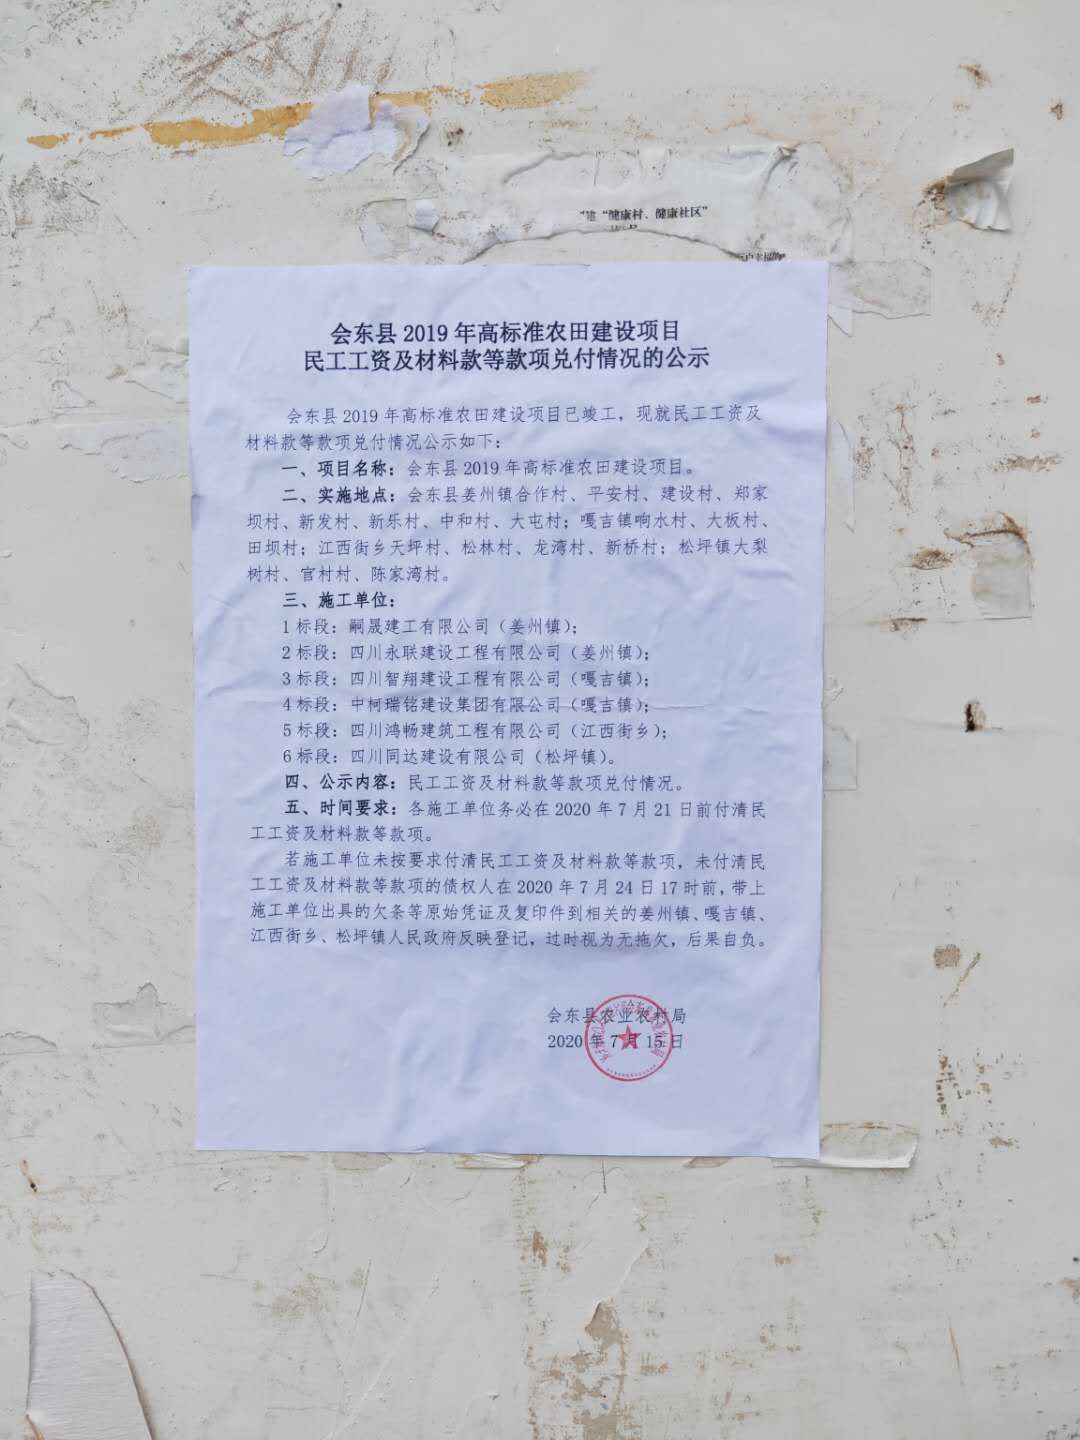 "健康村、健康社区"
会东县 2019 年高标准农田建设项目
民工工资及材料款等款项兑付情况的公示
会东县 2019 年高标准农田建设项目已竣工，现就民工工资及
材料款等款项兑付情况公示如下：
一、项目名称：会东县 2019 年高标准农田建设项目。
二、实施地点：会东县姜州镇合作村、平安村、建设村、郑家
坝村、新发村、新乐村、中和村、大屯村；嘎吉镇响水村、大板村、
田坝村；江西街乡天坪村、松林村、龙湾村、新桥村；松坪镇大梨
树村、官村村、陈家湾村。
三、施工单位：
1 标段：嗣晟建工有限公司（姜州镇）；
2 标段：四川永联建设工程有限公司（姜州镇）；
3 标段：四川智翔建设工程有限公司（嘎吉镇）；
4 标段：中柯瑞铭建设集团有限公司（嘎吉镇）；
5 标段：四川鸿畅建筑工程有限公司（江西街乡）；
6 标段：四川同达建设有限公司（松坪镇）。
四、公示内容：民工工资及材料款等款项兑付情况。
五、时间要求：各施工单位务必在 2020 年 7 月 21 日前付清民
工工资及材料款等款项。
若施工单位未按要求付清民工工资及材料款等款项，未付清民
工工资及材料款等款项的债权人在 2020 年 7 月 24 日 17 时前，带上
施工单位出具的欠条等原始凭证及复印件到相关的姜州镇、嘎吉镇、
江西街乡、松坪镇人民政府反映登记，过时视为无拖欠，后果自负。
会东县农业农村局
2020 年 7 月 15 日